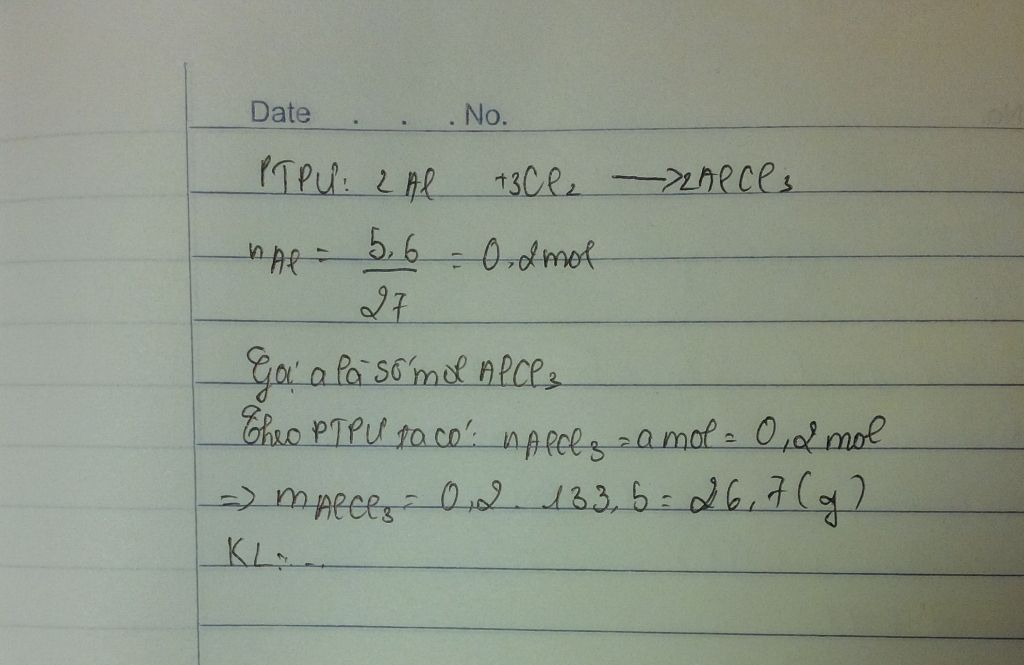 Date . . . No.
PTPU: 2 Al +3Cl₂ ⟶ 2AlCl₃
nAl = 5,6/27 = 0,2mol
Gọi a là số mol AlCl₃
Theo PTPU ta có: nAlCl₃ = a mol = 0,2 mol
=> mAlCl₃ = 0,2 . 133,5 = 26,7 (g)
KL: ...